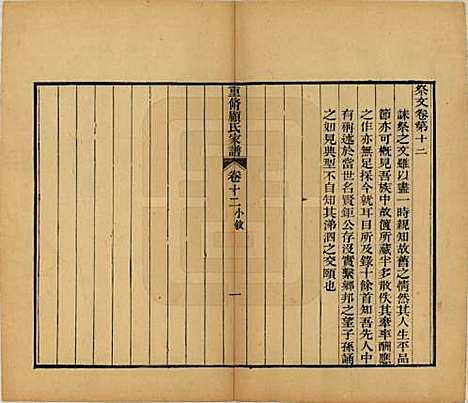 祭文卷第十二
誄祭之文雖以盡一時親知故舊之情然其人生平品
節亦可概見吾族中故篋所藏半多散佚其率率酬應
之作亦無足採今就耳目所及錄十餘首知吾先人中
有稱述於當世名賢鉅公存沒實繫鄉邦之望子孫誦
之如見典型不自知其涕泗之交頤也
重脩顧氏家譜
卷十二小敘
一